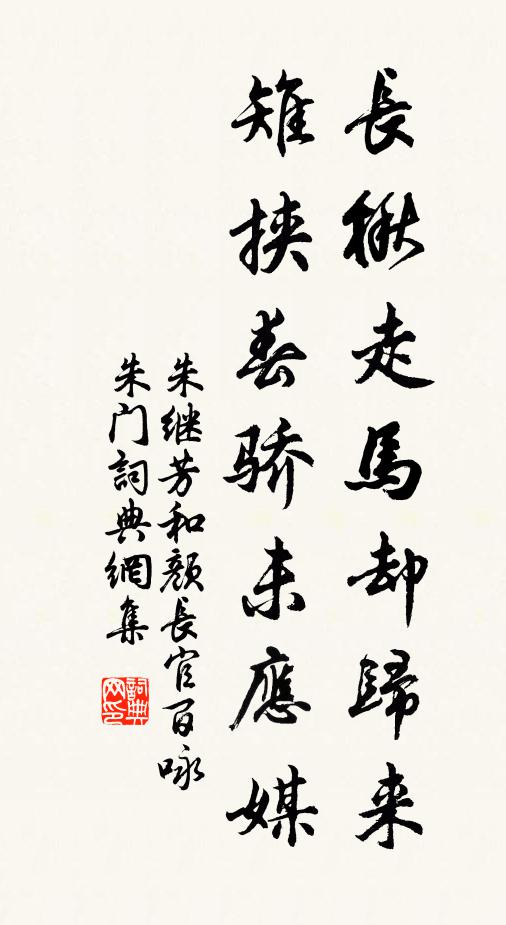 長楸走馬却歸来
雉挟春骄未應媒
朱继芳和颜長官百咏
朱门詞典網集
詞典
网印